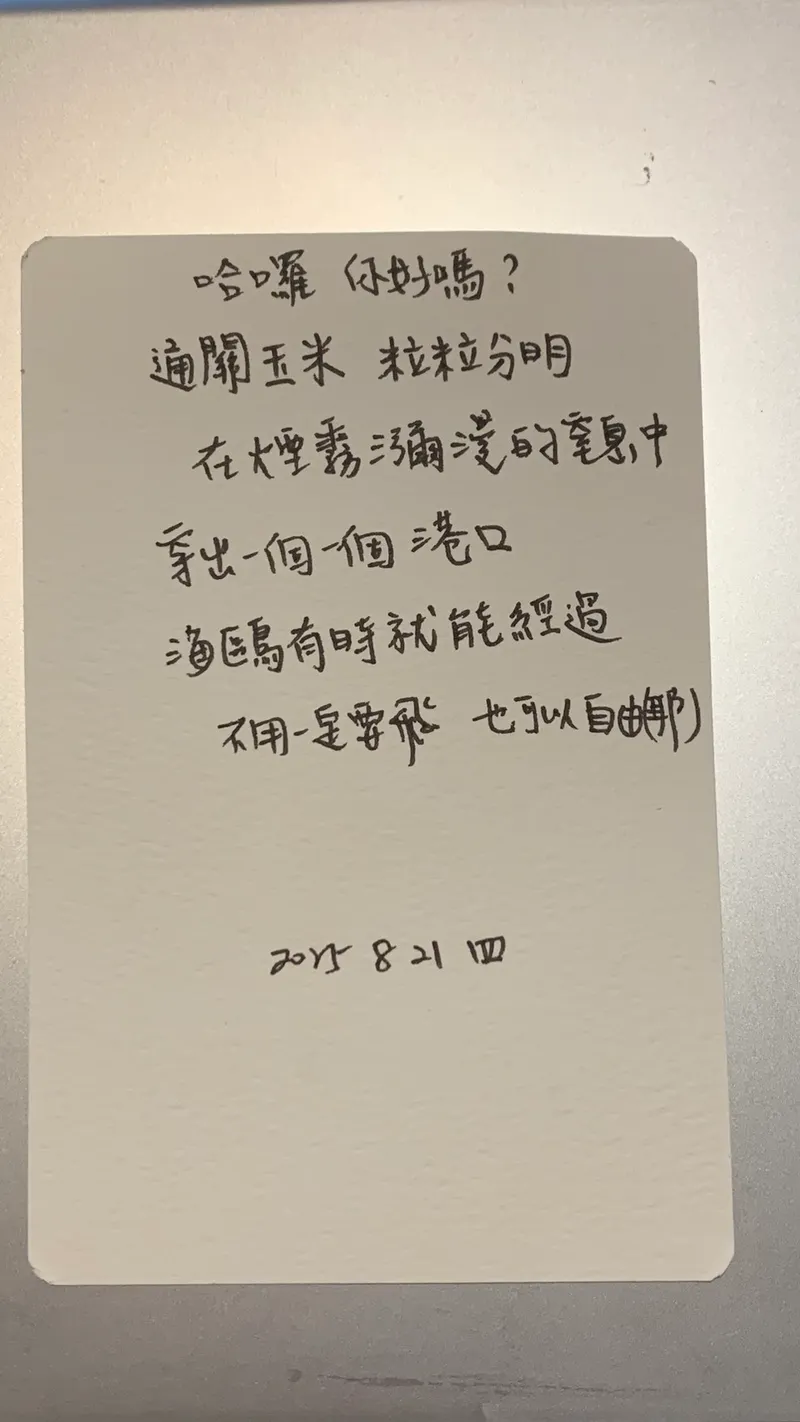 哈囉 你好嗎？
通關玉米 粒粒分明
在煙霧瀰漫的窒息中
穿出一個一個港口
海鷗有時就能經過
不用一定要飛 也可以自由(那)
2025 8 21 四